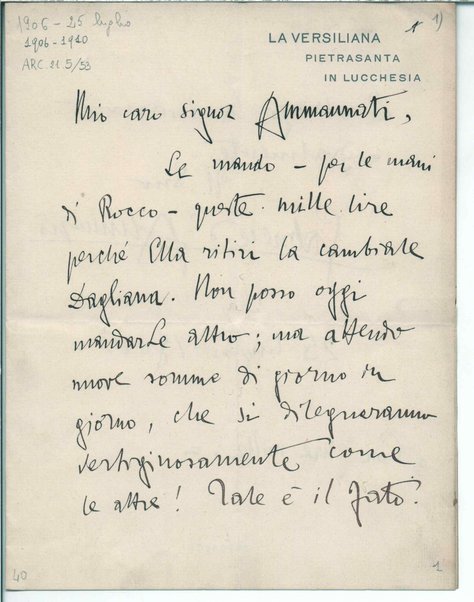 1906 - 25 luglio
1906-1910
ARC. 21 5/53
1)
LA VERSILIANA
PIETRASANTA
IN LUCCHESIA
Mio caro signor Ammannati,
Le mando - per le mani
di Rocco - queste mille lire
perché Ella ritiri la cambiale
Dagliana. Non posso oggi
mandarLe altro; ma attendo
nuove somme di giorno in
giorno, che si dilegueranno
vertiginosamente come
le altre! Tale è il fato.
40
1